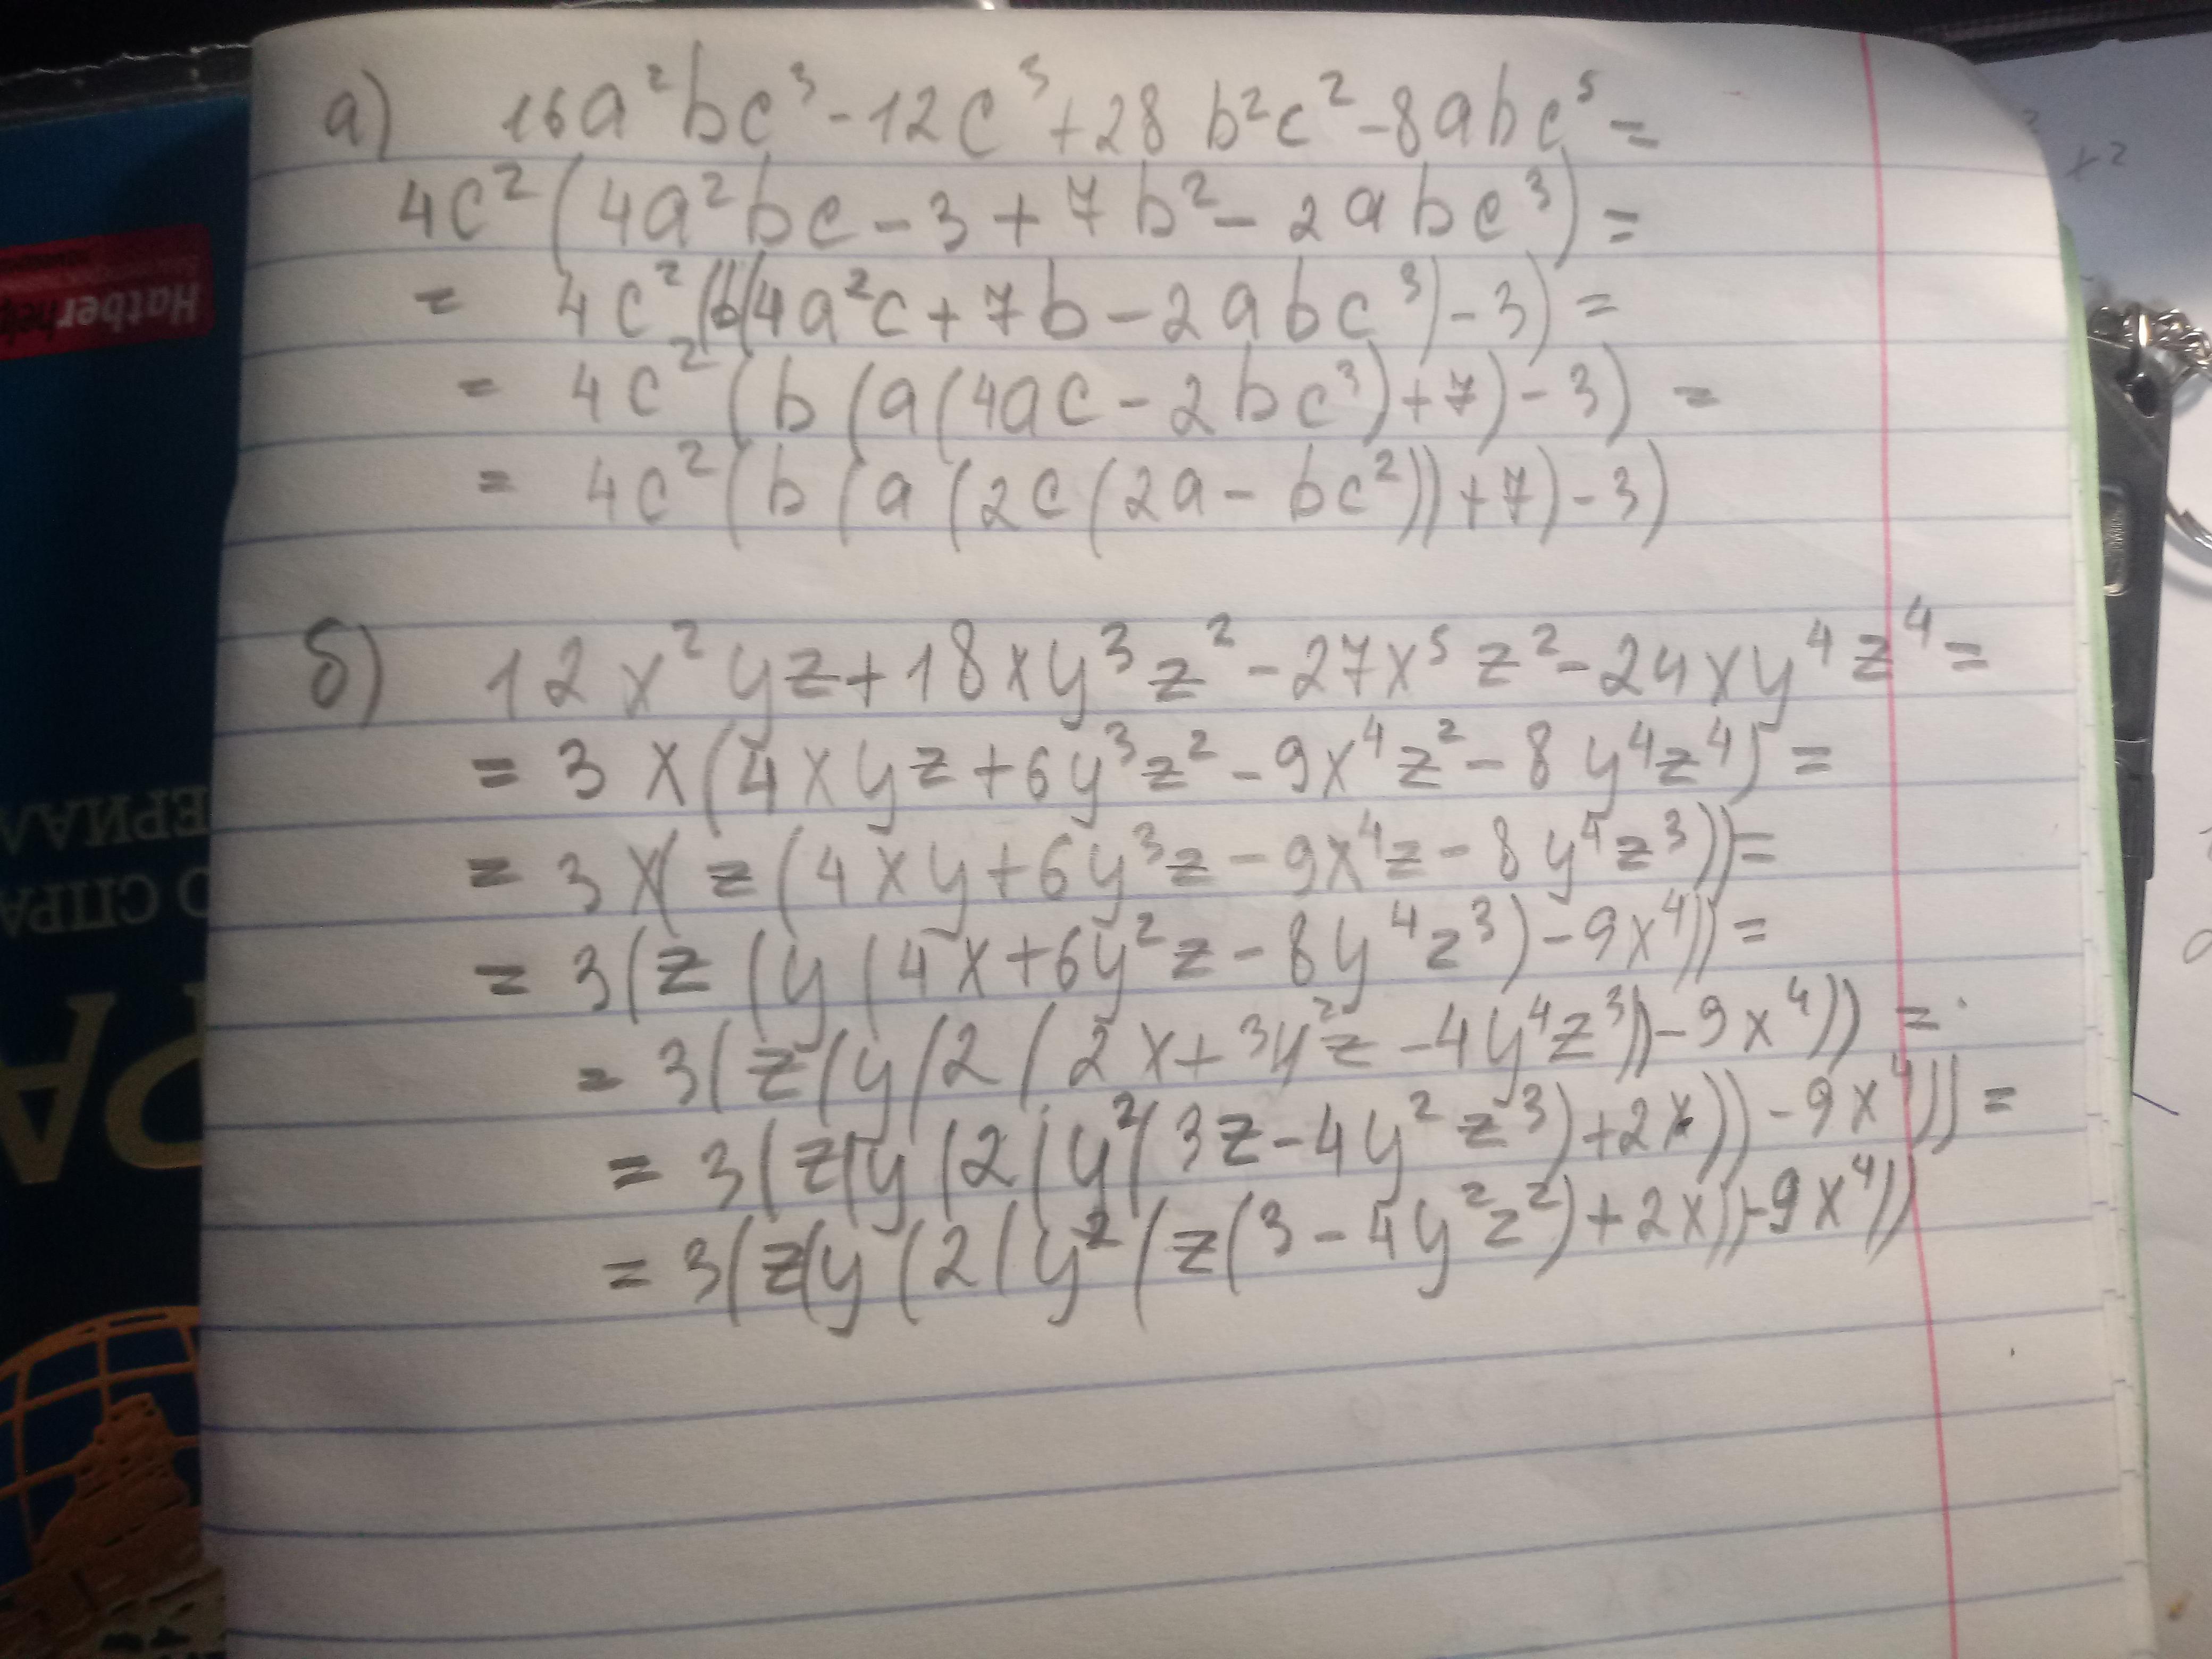 а) 16a²bc³ - 12c³ + 28b²c² - 8abc⁵ =
4c²(4a²bc - 3 + 7b² - 2abc³) =
= 4c²(b(4a²c + 7b - 2abc³) - 3) =
= 4c²(b(a(4ac - 2bc³) + 7) - 3) =
= 4c²(b(a(2c(2a - bc²)) + 7) - 3)
б) 12x²yz + 18xy³z² - 27x⁵z² - 24xy⁴z⁴ =
= 3x(4xyz + 6y³z² - 9x⁴z² - 8y⁴z⁴) =
= 3x(z(4xy + 6y³z - 9x⁴z - 8y⁴z³)) =
= 3(z(y(4x + 6y²z - 8y⁴z³) - 9x⁴)) =
= 3(z(y(2(2x + 3y²z - 4y⁴z³)) - 9x⁴)) =
= 3(z(y(2(y²(3z - 4y²z³) + 2x)) - 9x⁴)) =
= 3(z(y(2(y²(z(3 - 4y²z²) + 2x)) - 9x⁴))
Hatber
ЕРИАЛ
О СПРА
РА
x²